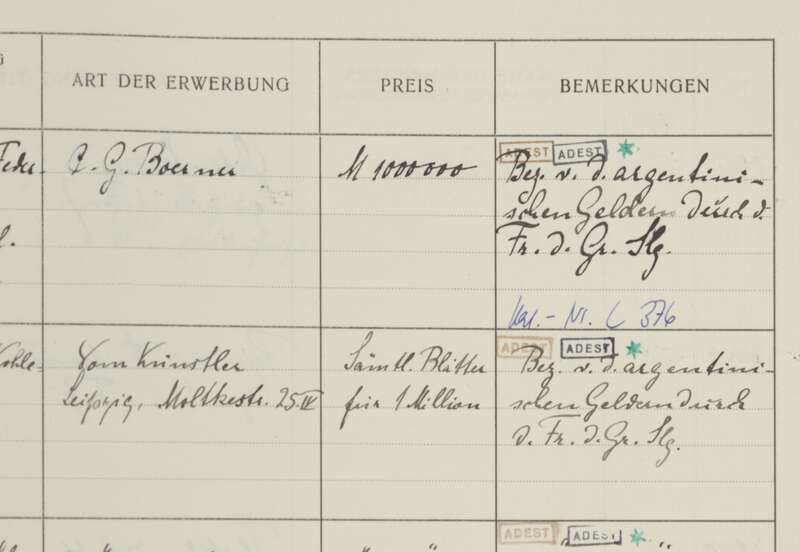 ART DER ERWERBUNG
PREIS
BEMERKUNGEN
Feder.
C. G. Boerner
M 1000000
ADEST ADEST
Bez. v. d. argentini-
schen Geldern durch d.
Fr. d. Gr. Slg.
Nr. C 376
Kohle-
Vom Künstler
Leipzig, Moltkestr. 25.IV
Sämtl. Blätter
für 1 Million
ADEST ADEST
Bez. v. d. argentini-
schen Geldern durch
d. Fr. d. Gr. Slg.
ADEST ADEST
" "